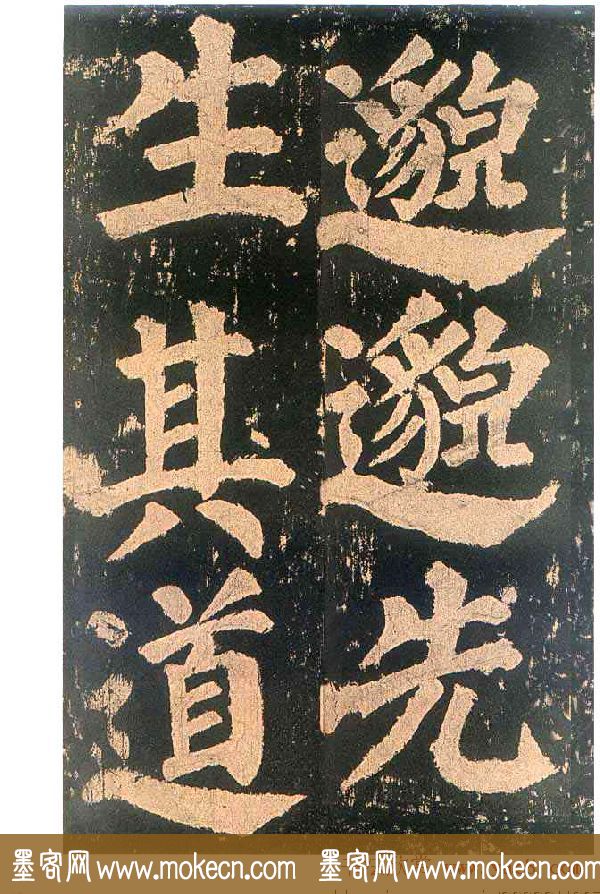 邈邈先
生其道
墨客网 www.mokecn.com 墨客网 www.mokecn.com